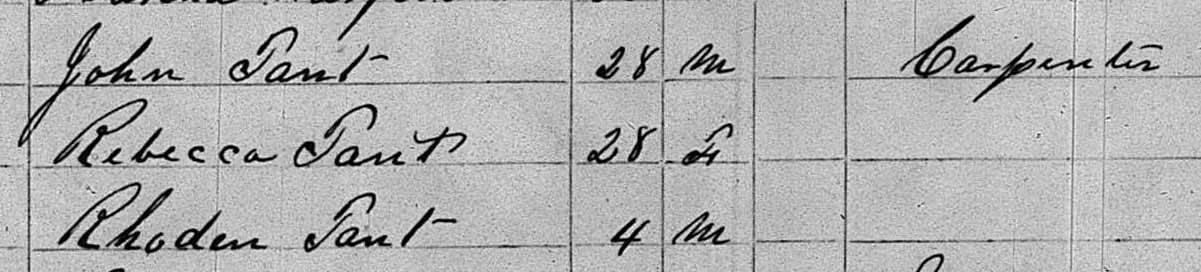 John Tant 28 m Carpenter
Rebecca Tant 28 F
Rhoden Tant 4 m